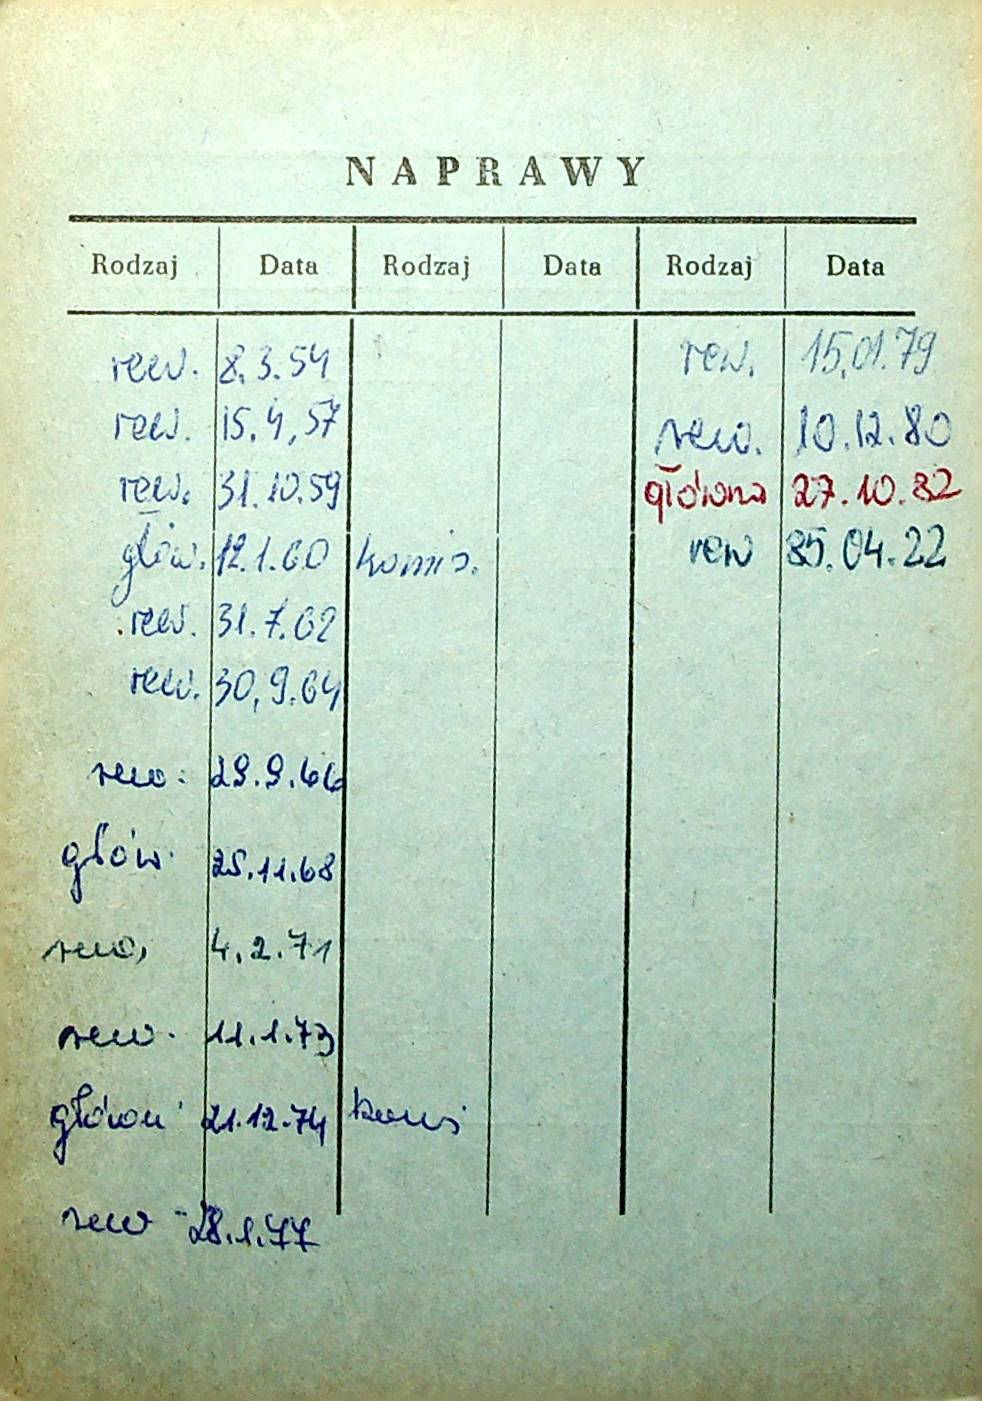 NAPRAWY
Rodzaj Data Rodzaj Data Rodzaj Data
rew. 8.3.54 rew. 15.01.79
rew. 15.4.57 rew. 10.12.80
rew. 31.10.59 główna 27.10.82
głów. 12.1.60 komis. rew 85.04.22
rew. 31.7.62
rew. 30.9.64
rew. 29.9.66
głów. 25.11.68
rew. 4.2.71
rew. 11.1.73
główn 21.12.74 komis
rew 28.1.77